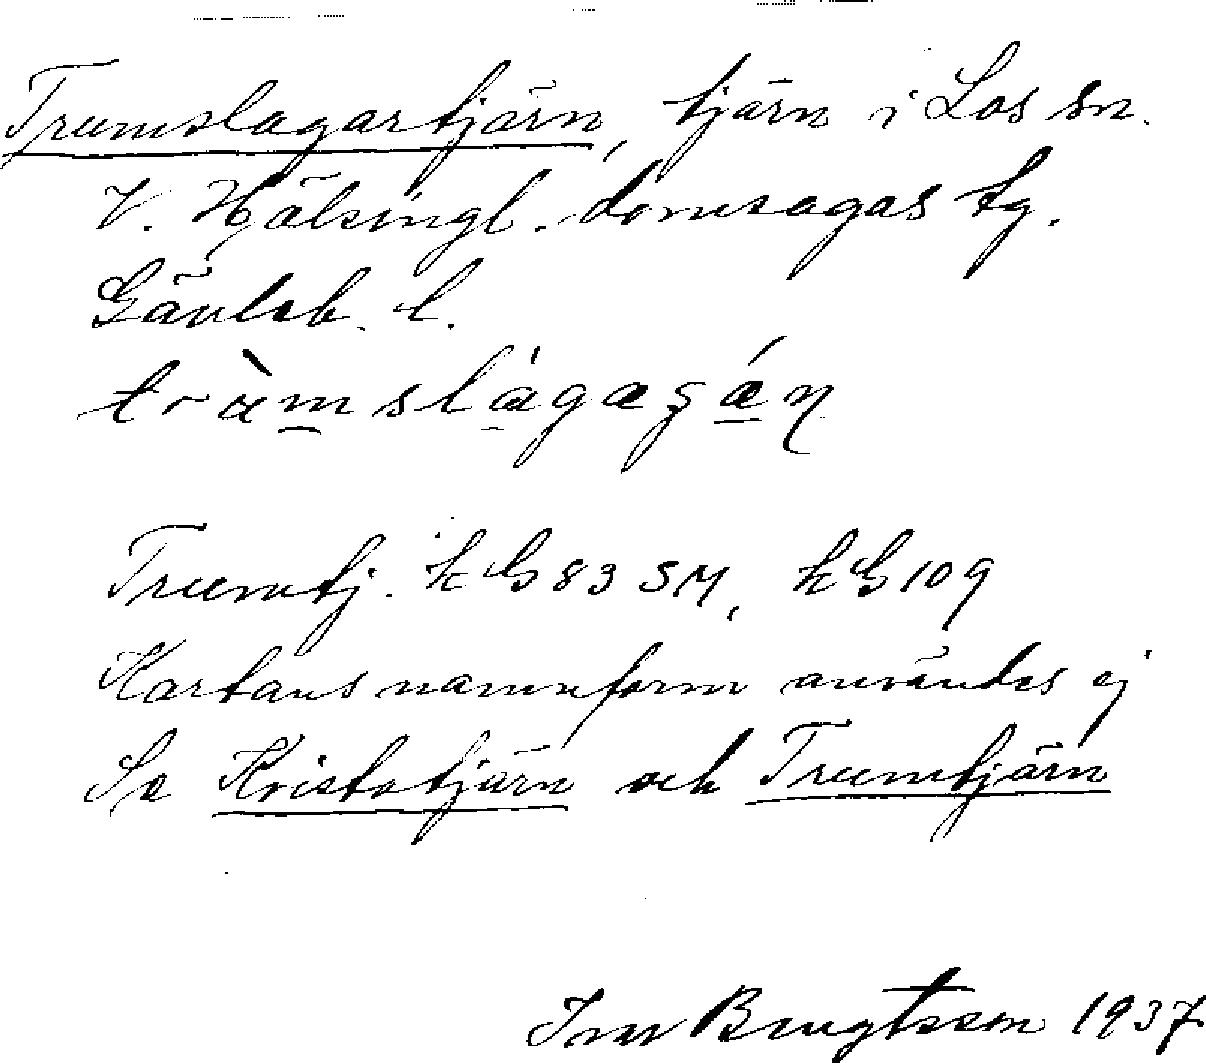 Trumslagartjärn, tjärn i Los sn.
V. Hälsingl. domsagas tg.
Gävleb. l.
Trumtj. k G 83 SM, k G 109
Kartans namnform användes ej
Se Kristotjärn och Trumtjärn
Ivar Bengtsson 1937